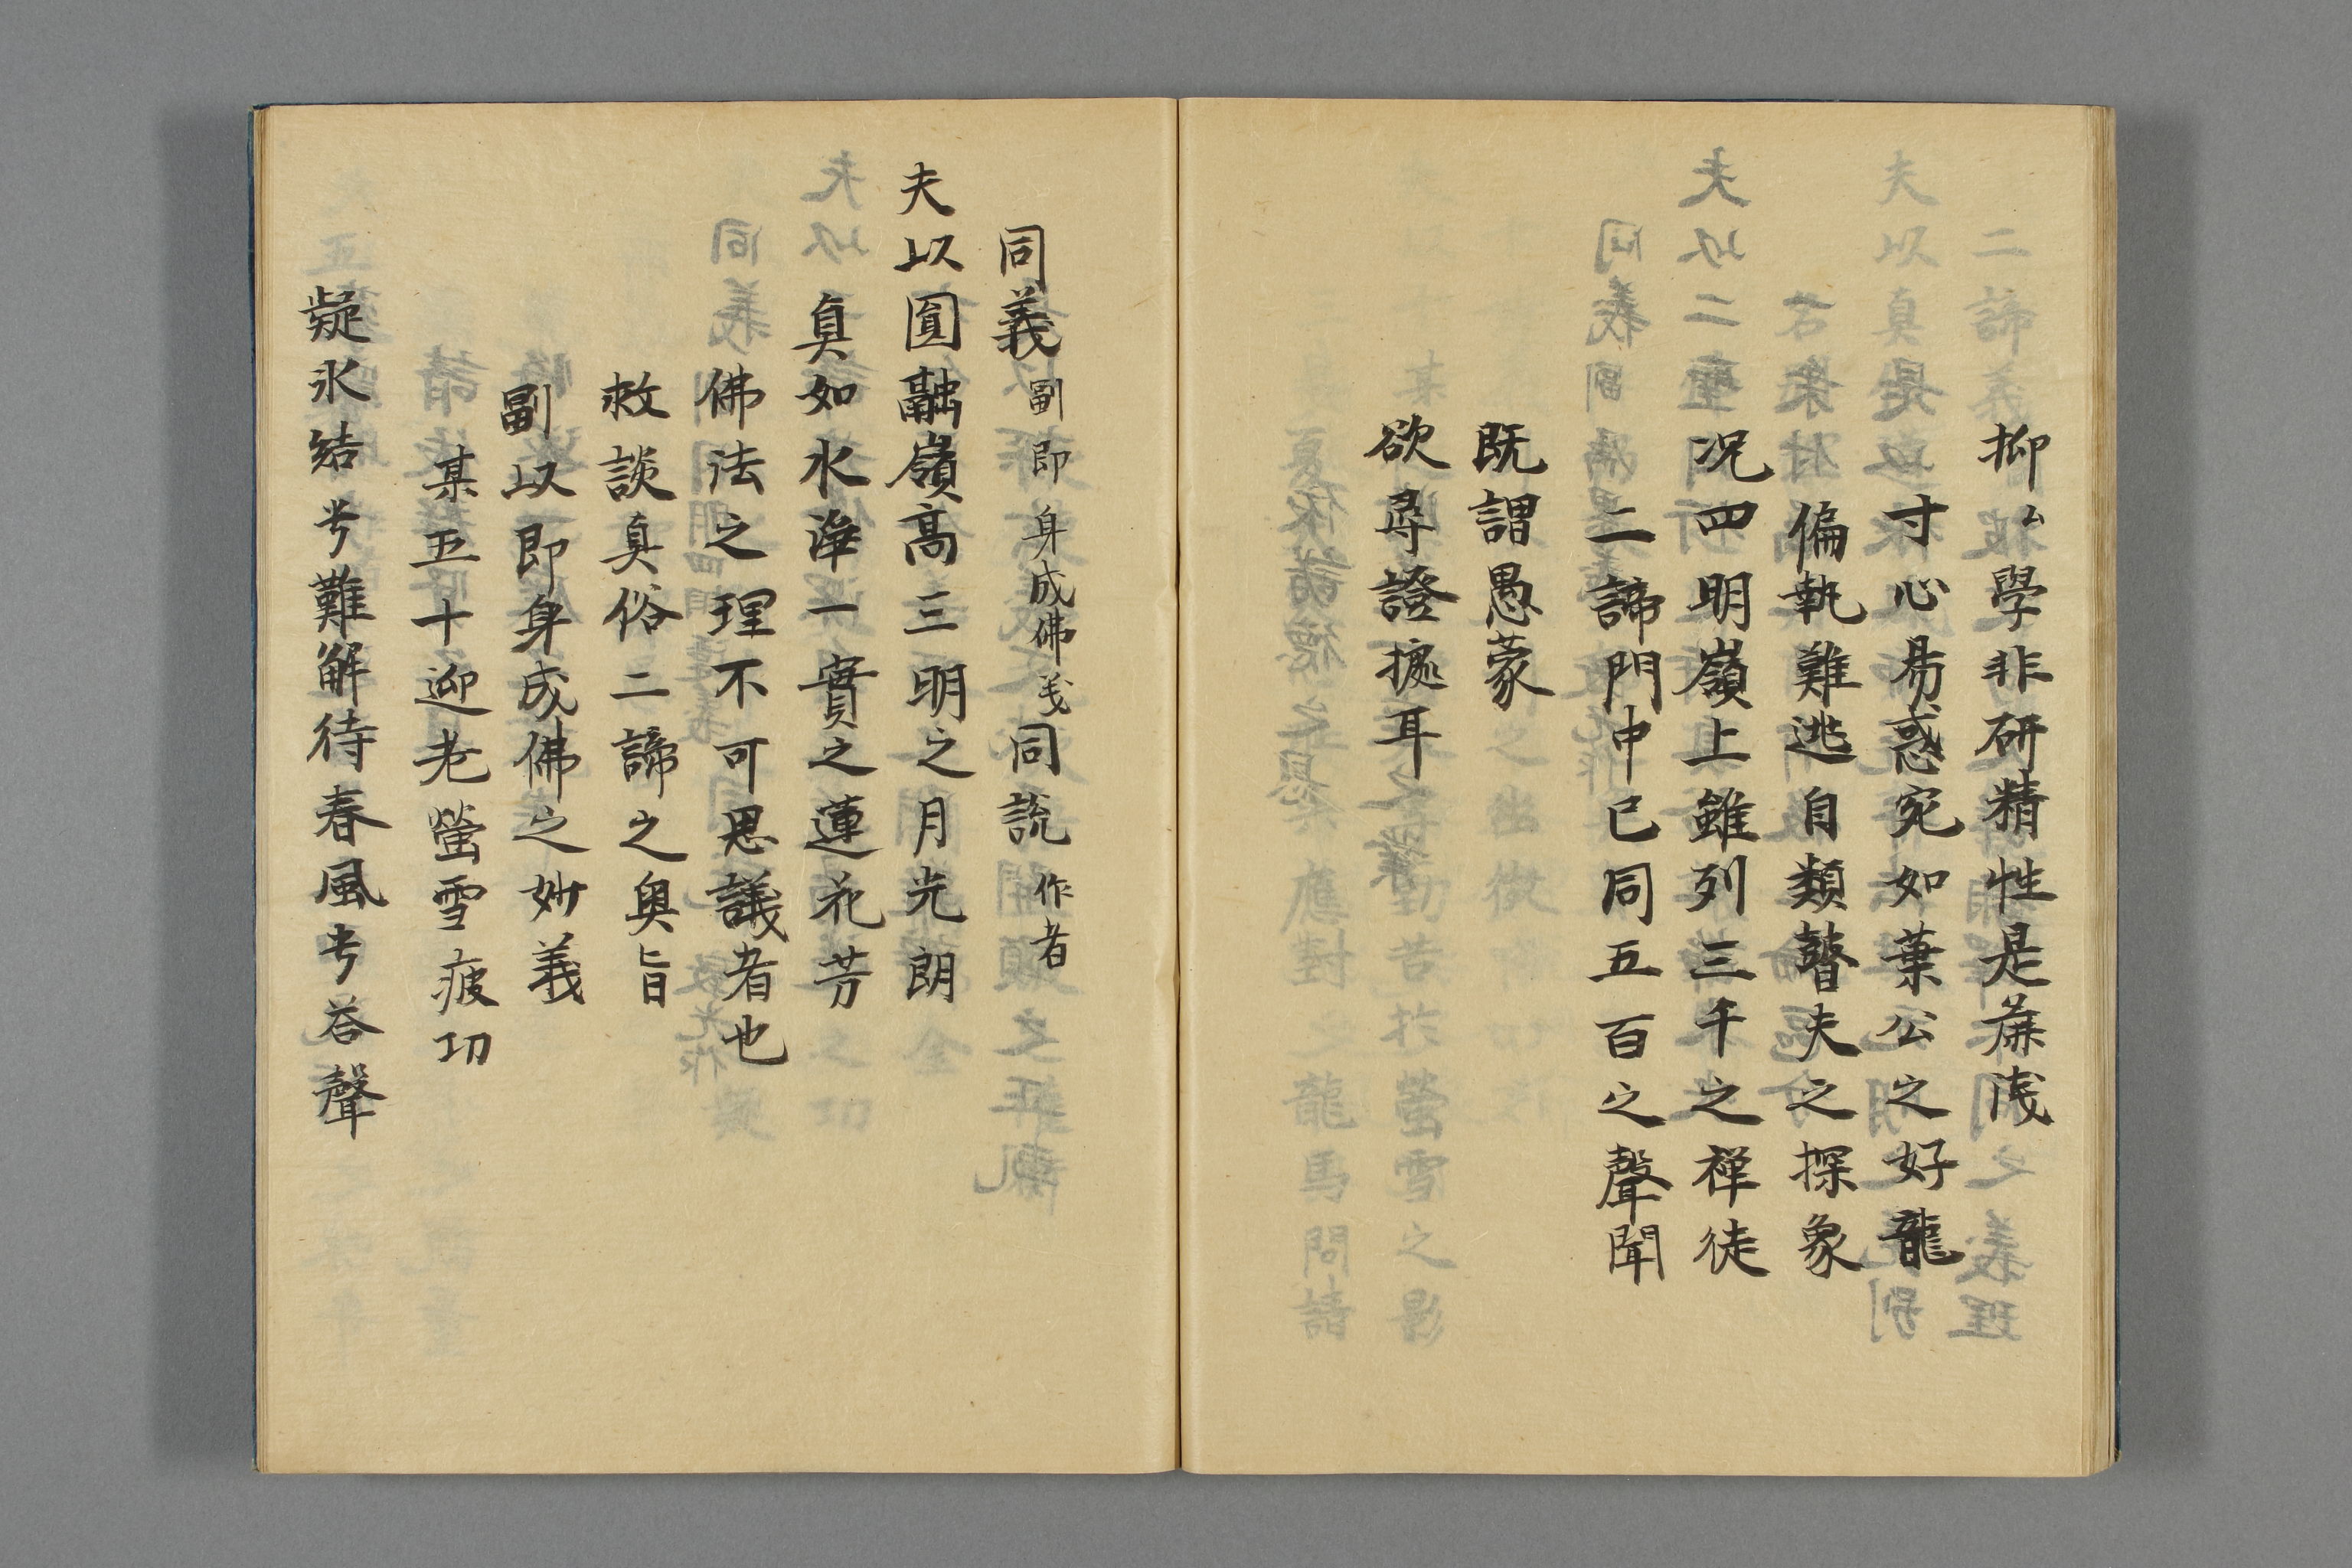 抑ム學非研精性是麁浅
寸心易惑宛如葉公之好龍
偏執難逃自類瞽夫之探象
况四明嶺上雖列三千之禅徒
二諦門中已同五百之聲聞
既謂愚蒙
欲尋證據耳
同義副即身成佛義同説作者
夫以圓融嶺高三明之月光朗
真如水浄一實之蓮花芳
佛法之理不可思議者也
救談真俗二諦之奥旨
副以即身成佛之妙義
某五十迎老螢雪疲功
凝氷結兮難解待春風兮荅聲